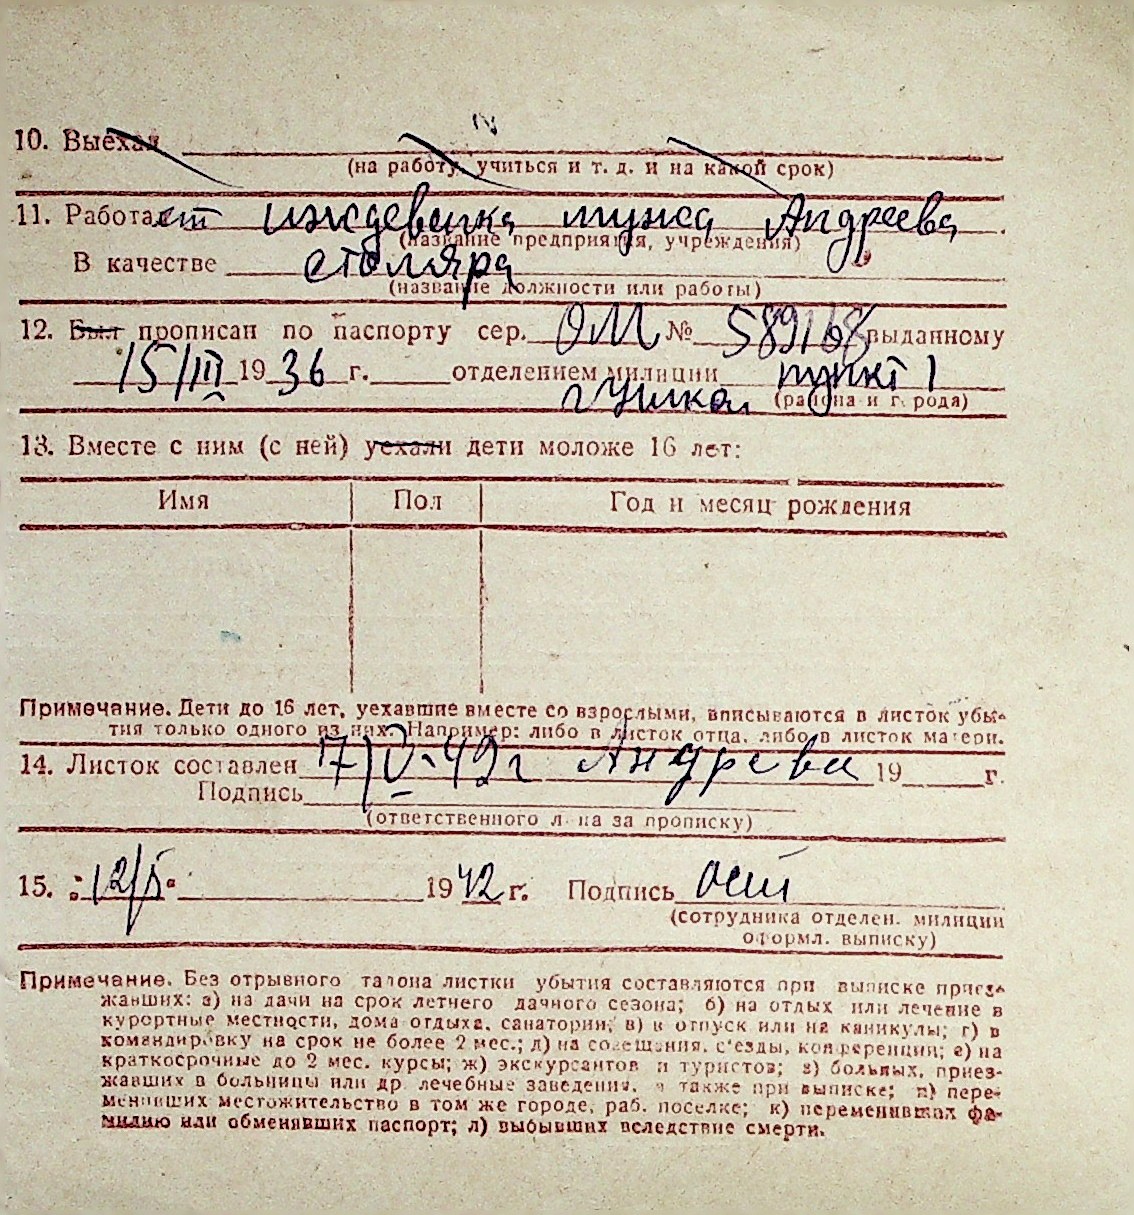 10. Выехал
(на работу, учиться и т. д. и на какой срок)
11. Работает иждевенка мужа Андреева
(название предприятия, учреждения)
В качестве столяра
(название должности или работы)
12. Был прописан по паспорту сер. ОМ № 589168 выданному
15/III 1936 г. отделением милиции пункт 1
(района и города)
13. Вместе с ним (с ней) уехали дети моложе 16 лет:
Имя Пол Год и месяц рождения
Примечание. Дети до 16 лет, уехавшие вместе со взрослыми, вписываются в листок убы-
тия только одного из них. Например: либо в листок отца, либо в листок матери.
14. Листок составлен 17/V-42г Андреева 19 г.
Подпись
(ответственного лица за прописку)
15. "12/5" 1942 г. Подпись
(сотрудника отделен. милиции
оформл. выписку)
Примечание. Без отрывного талона листки убытия составляются при выписке приез-
жавших: а) на дачи на срок летнего дачного сезона; б) на отдых или лечение в
курортные местности, дома отдыха, санатории; в) в отпуск или на каникулы; г) в
командировку на срок не более 2 мес.; д) на совещания, с'езды, конференции; е) на
краткосрочные до 2 мес. курсы; ж) экскурсантов и туристов; з) больных, приез-
жавших в больницы или др. лечебные заведения, а также при выписке; и) пере-
менивших местожительство в том же городе, раб. поселке; к) переменивших фа-
милию или обменявших паспорт; л) выбывших вследствие смерти.